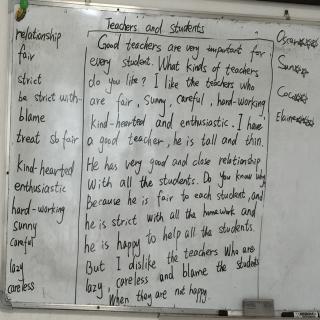 relationship
fair
strict
be strict with
blame
treat sb fair
kind-hearted
enthusiastic
hard-working
sunny
careful
lazy
careless
Teachers and students
Good teachers are very important for
every student. What kinds of teachers
do you like? I like the teachers who
are fair, sunny, careful, hard-working,
kind-hearted and enthusiastic. I have
a good teacher, he is tall and thin.
He has very good and close relationship
with all the students. Do you know why
Because he is fair to each student, and
he is strict with all the homework and
he is happy to help all the students.
But I dislike the teachers who are
lazy, careless and blame the students
when they are not happy.
Oscar
Sun
Coco
Elaine